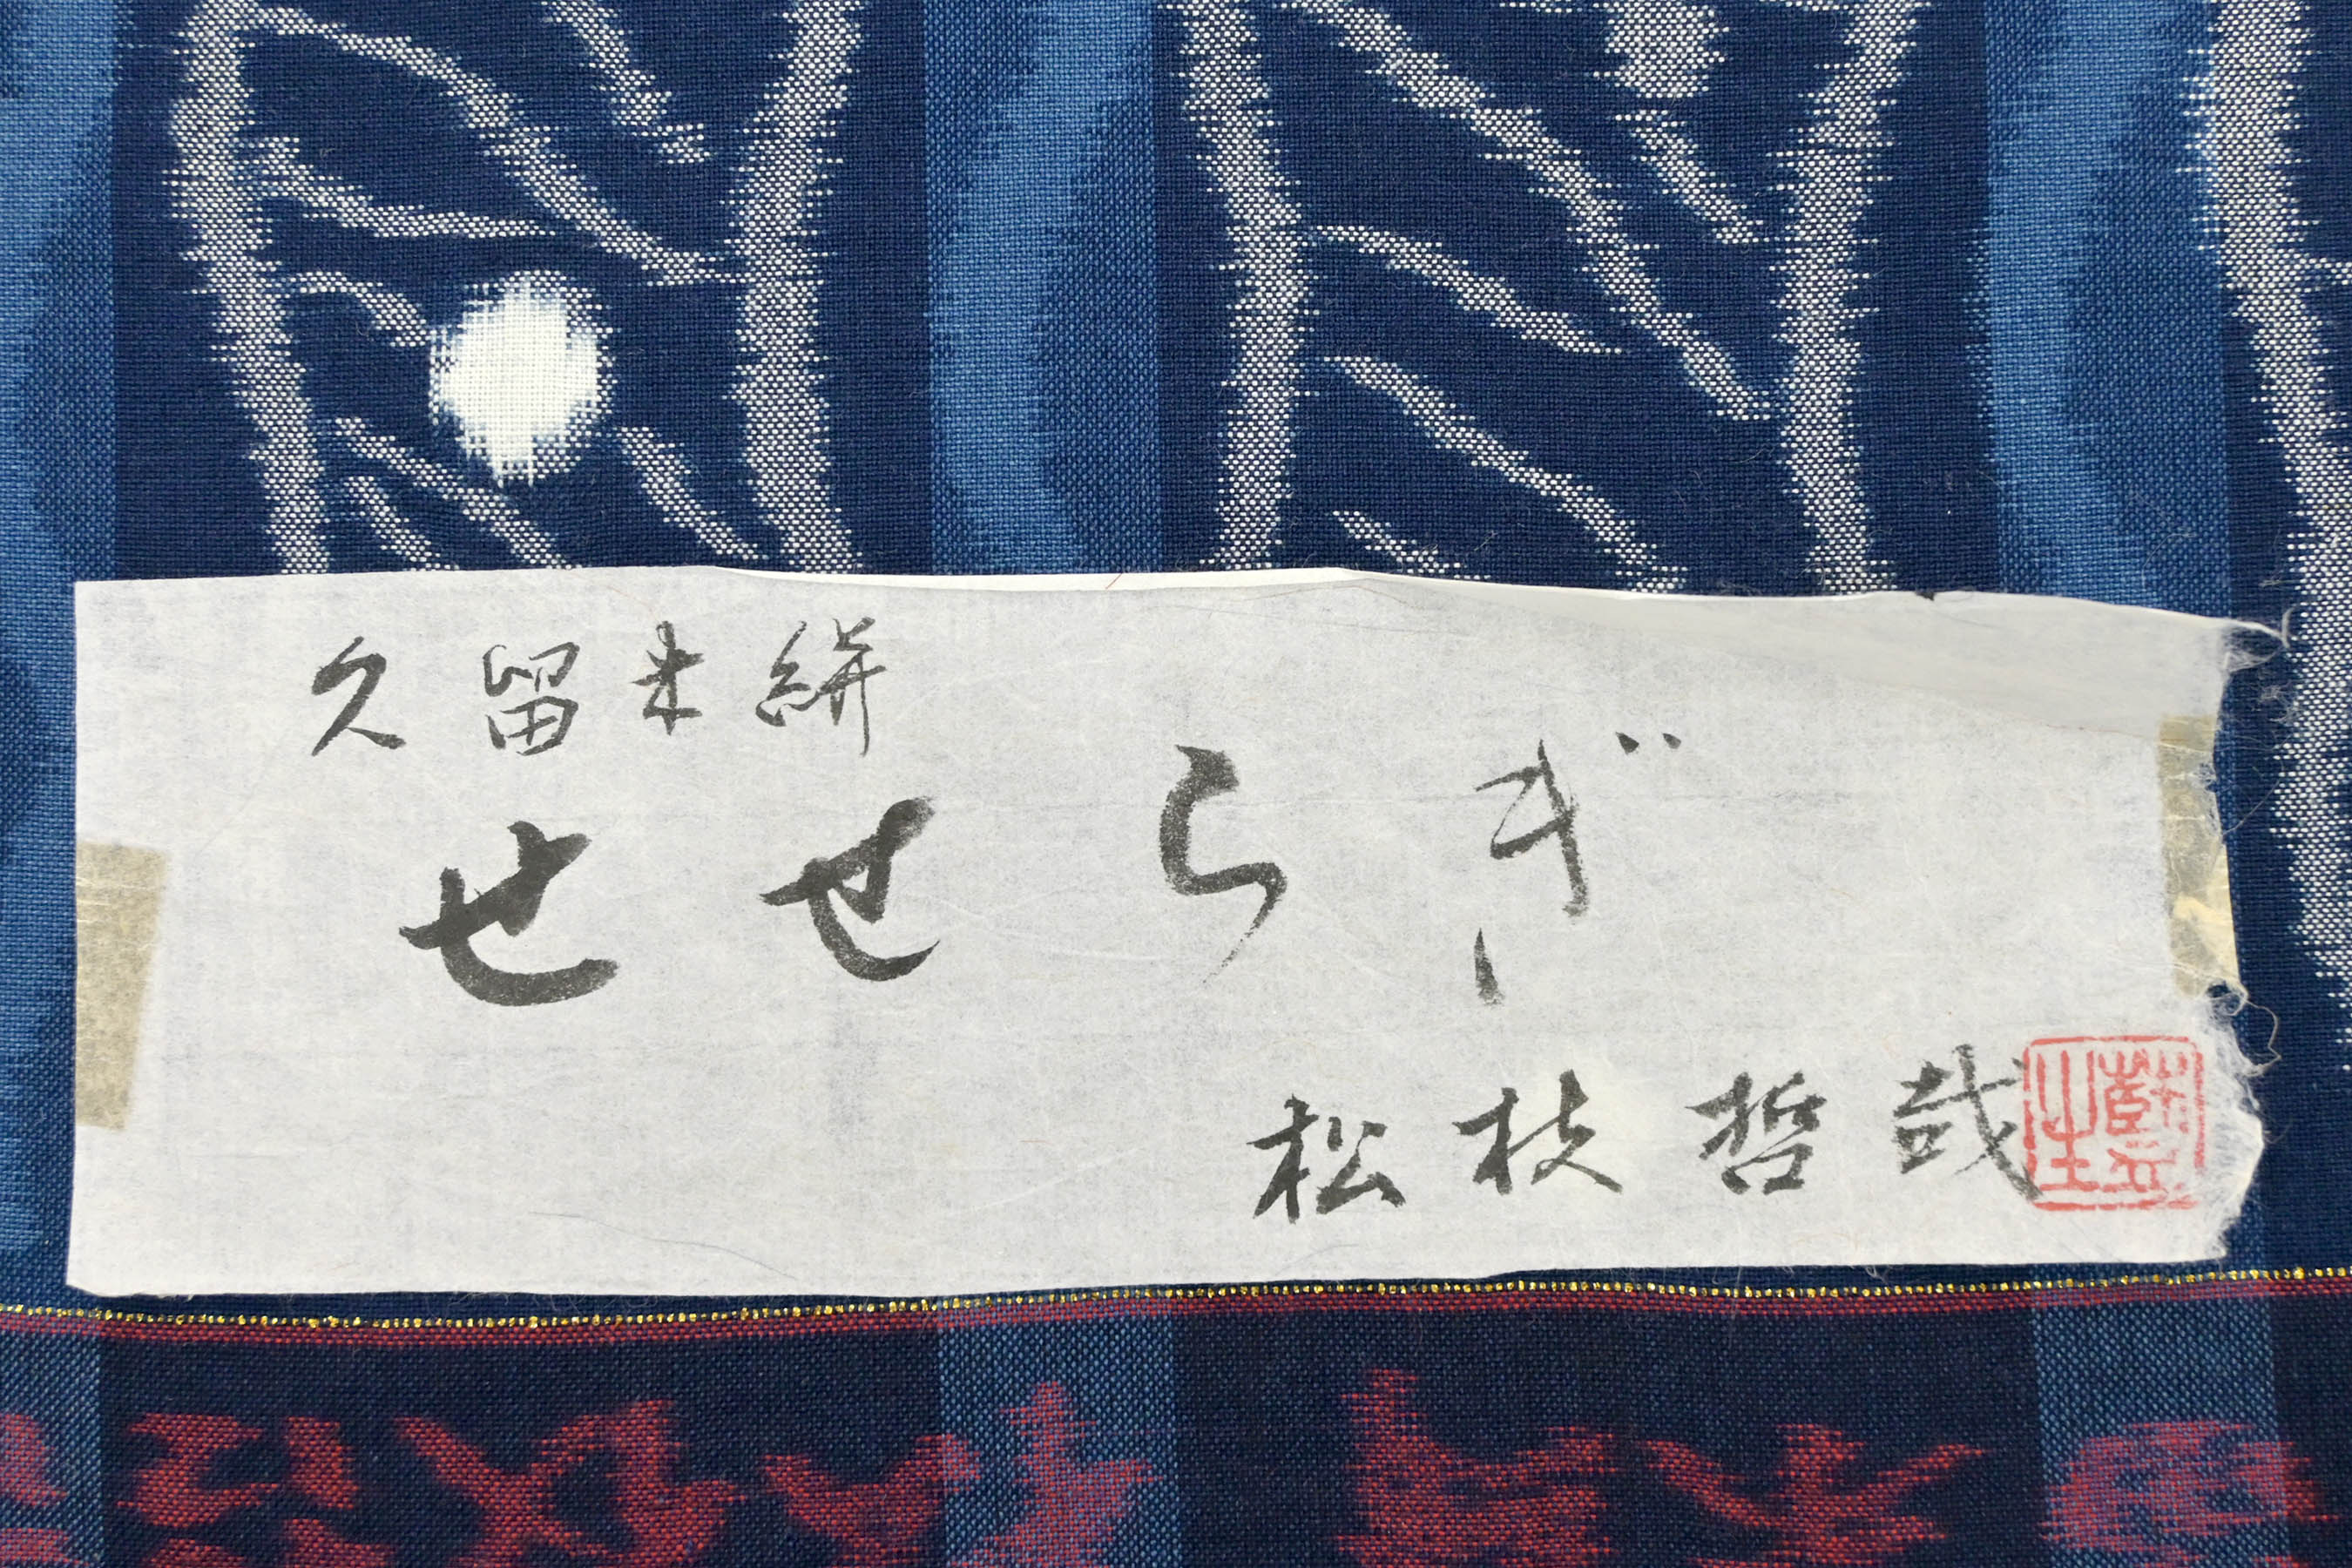 久留米絣
せせらぎ
松枝哲哉